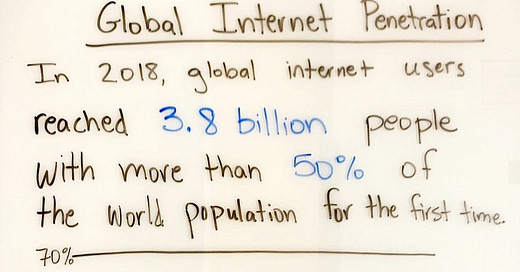 Global Internet Penetration
In 2018, global internet users
reached 3.8 billion people
with more than 50% of
the world population for the first time.
70%